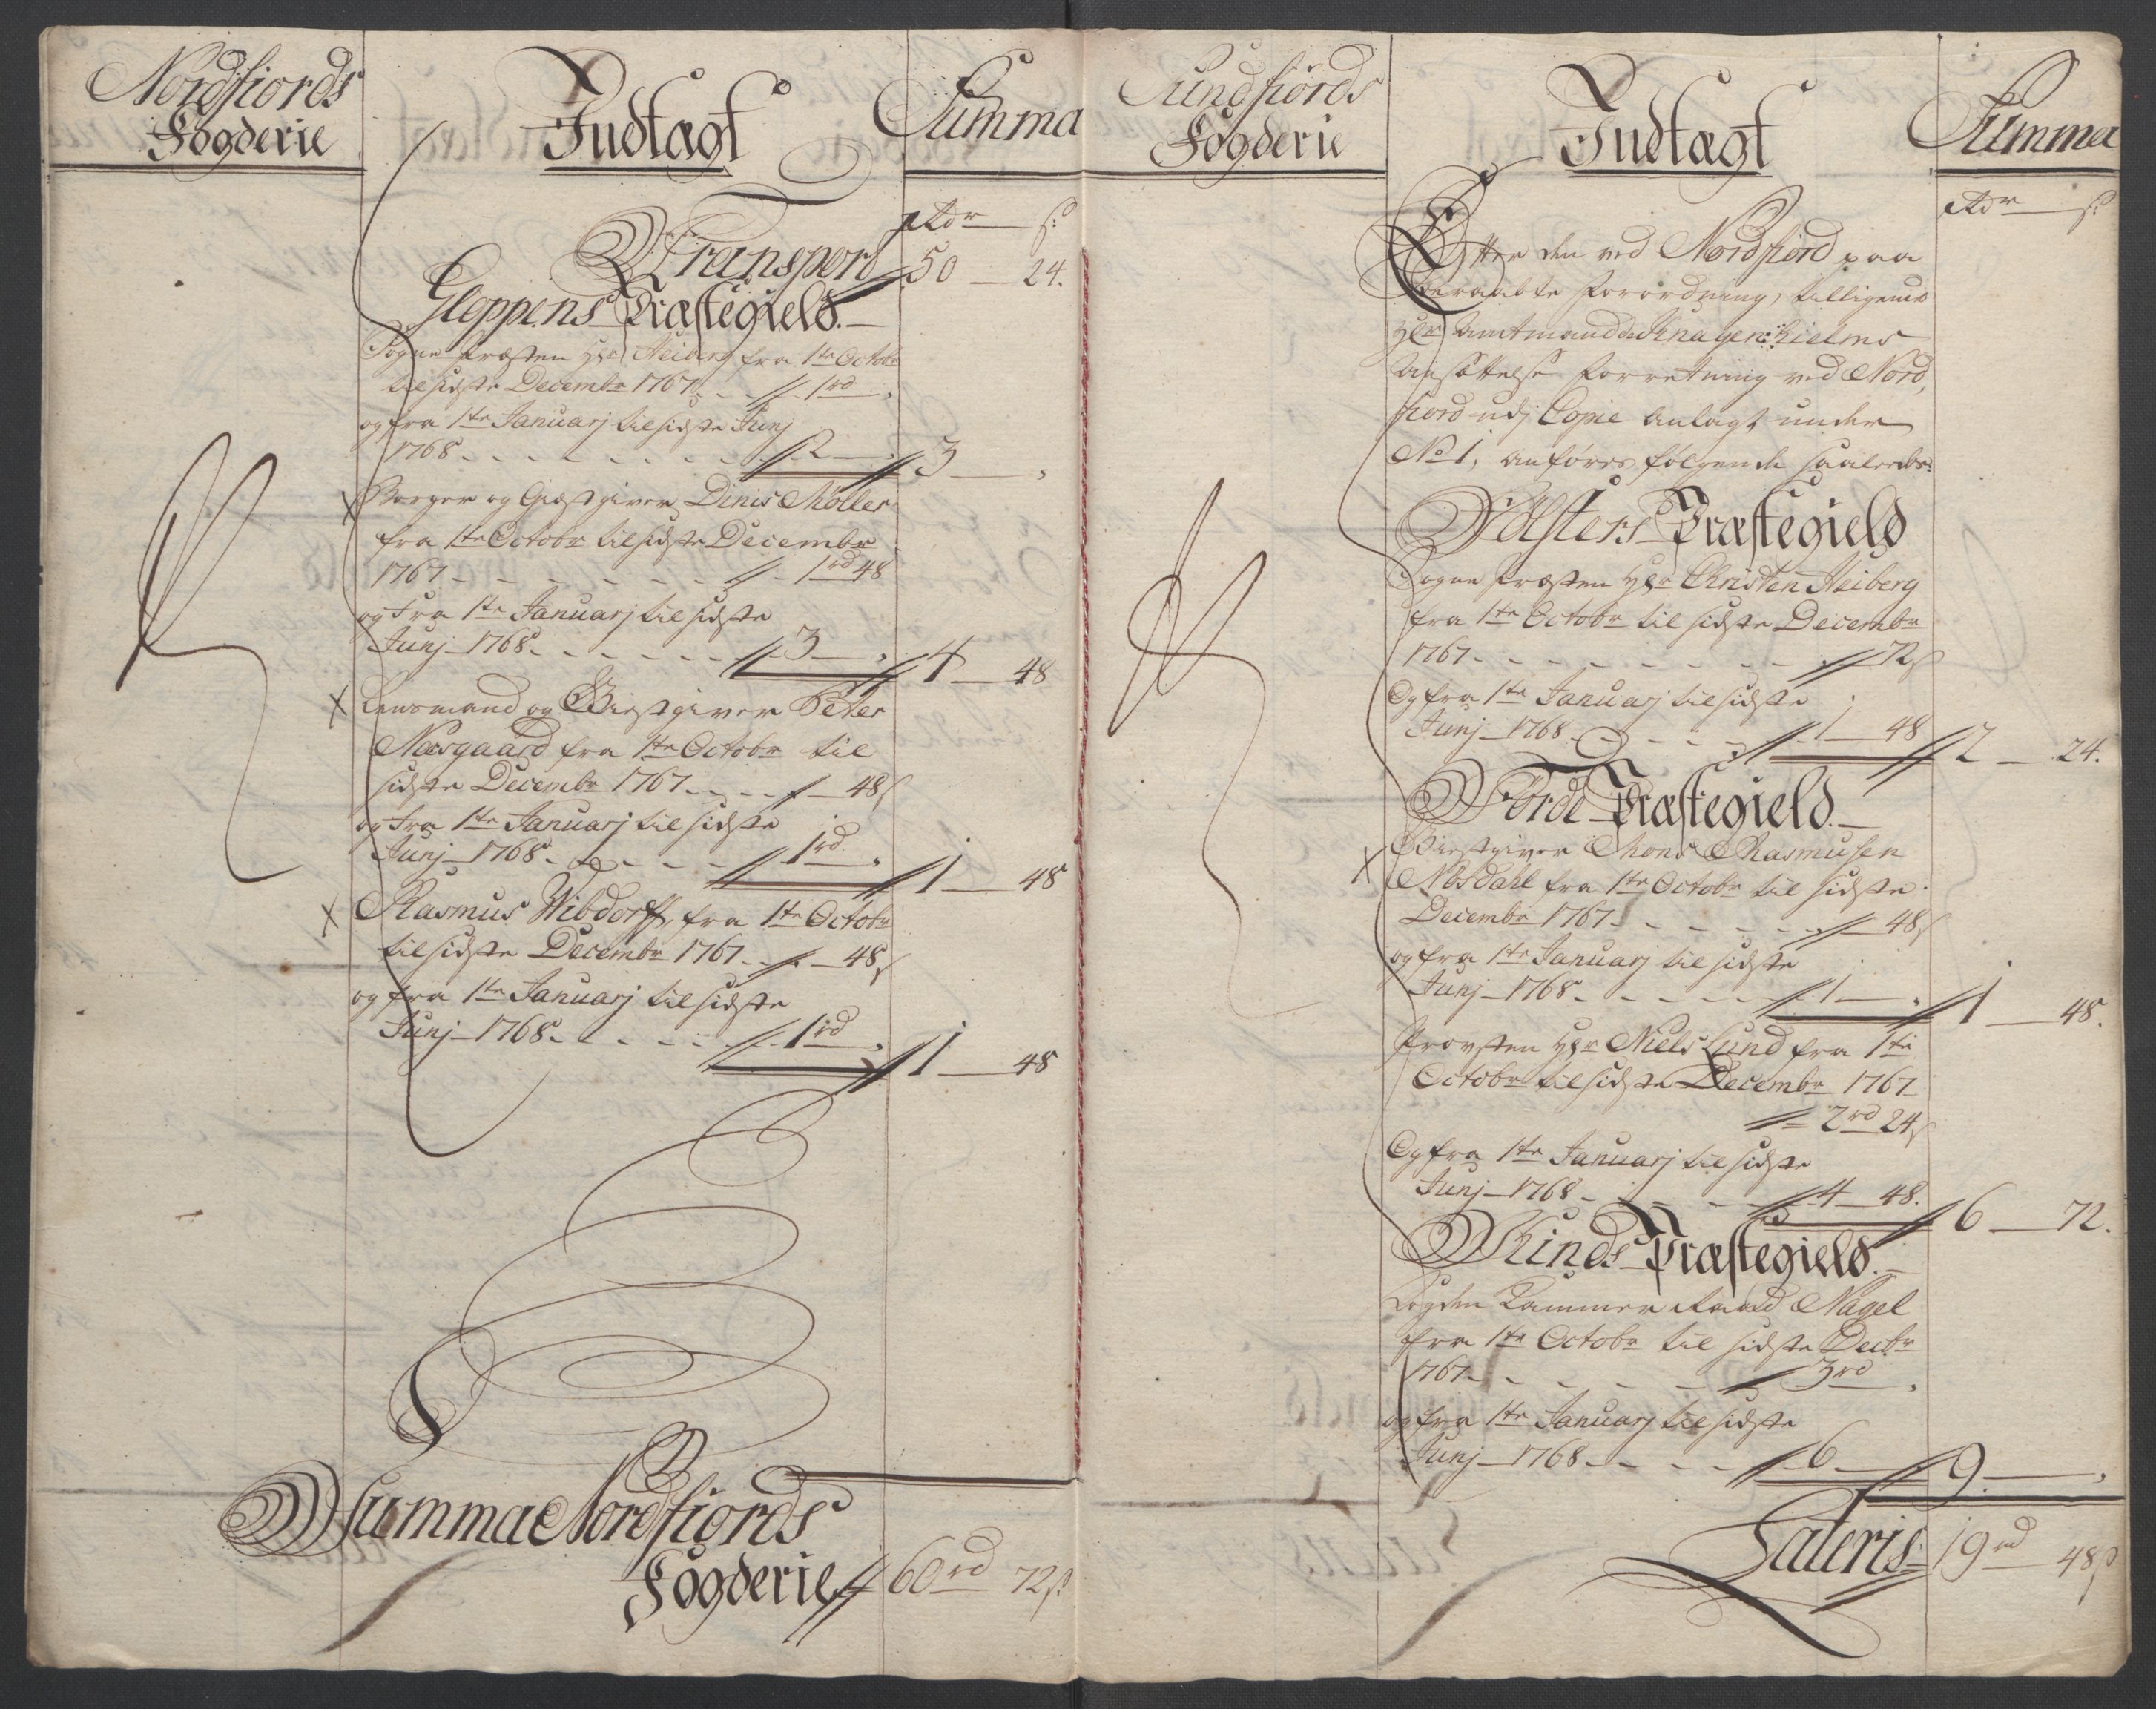 Nordfiords
Fogderie
Indtægt
Summa
Rdr ß:
Transport 50 24.
Gloppens Præstegield.
Sogne Præsten Hr: Heiberg fra 1te Octobr
til sidste Decembr 1767. 1rd
og fra 1te Januarj til sidste Junj
1768 2 3
x Borger og Giæstgiver Dinis Møller
fra 1te Octobr til sidste Decembr
1767 1rd 48
og fra 1te Januarj til sidste
Junj 1768 3 4 48
x Lensmand og Giestgiver Peter
Nøsgaard fra 1te Octobr til
sidste Decembr 1767 48ß
og fra 1te Januarj til sidste
Junj 1768 1rd 1 48
x Rasmus Wibdorff, fra 1te Octobr
til sidste Decembr 1767 48ß
og fra 1te Januarj til sidste
Junj 1768 1rd 1 48
Summa Nordfiords
Fogderie 60rd 72ß
Sundfiords
Fogderie
Indtægt
Summa
Rdr ß:
Efter den ved Nordfiord paa
beraabte Forordning, tilligemed
Hr Amtmand de Knagenhielms
Ansættelse Forretning ved Nord,
fiord udj Copie anlagt under
No 1, anføres følgende saaledes:
Jølsters Præstegield
Sogne Præsten Hr Christen Heiberg
fra 1te Octobr til sidste Decembr
1767 72ß
Og fra 1te Januarj til sidste
Junj 1768 1 48 2 24.
Førde Præstegield.
x Giestgiver Mons Rasmusen
Nøsdahl fra 1te Octobr til sidste
Decembr 1767 48ß
og fra 1te Januarj til sidste
Junj 1768 1 1 48.
Provsten Hr Niels Lund fra 1te
Octobr til sidste Decembr 1767
2rd 24ß
Og fra 1te Januarj til sidste
Junj 1768 4 48. 6 72.
Kinds Præstegield.
Fogden Kammer Raad Nagel
fra 1te Octobr til sidste Decbr
1767 3rd
og fra 1te Januarj til sidste
Junj 1768 6 9
Lateris 19rd 48ß